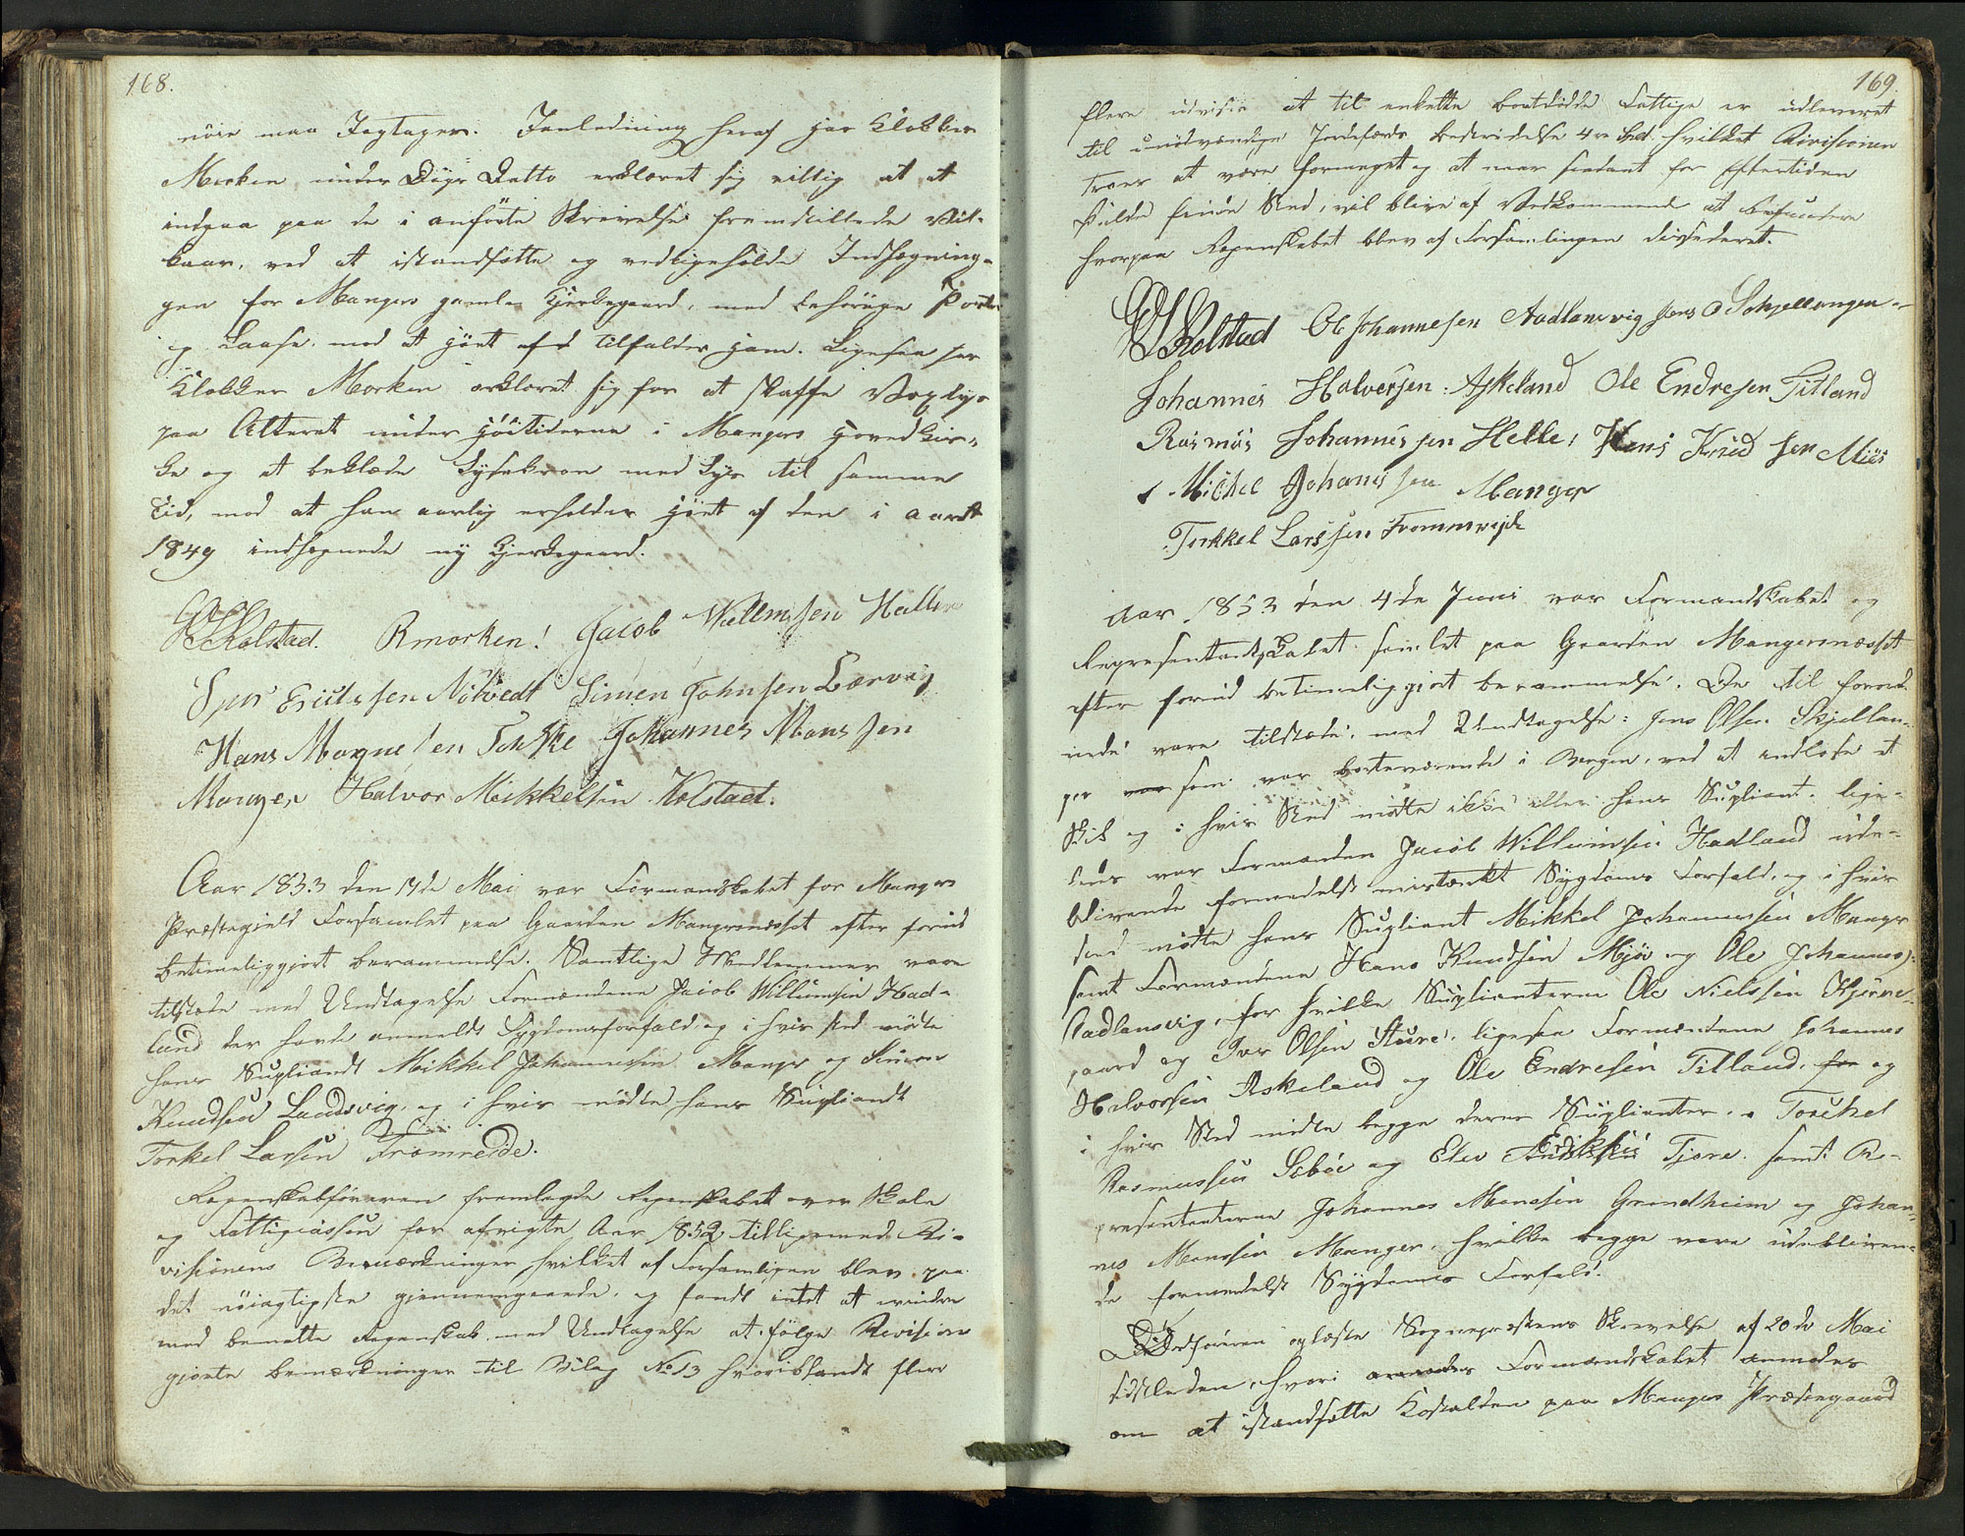 168.
nöie maa Iagtages. Ianledning heraf har Klokker
Morken under Dags Datto erklæret sig villig at at
indgaa paa de i anförte Skrivelse fremstillede Vil-
kaar, ved at istandsætte og vedligeholde Indhegning-
gen for Mangers gamle Kjerkegaard, med behörige Port
og Laase, mod at höet af  tilfalder ham. Ligesaa har
Klokker Morken erklæret sig for at skaffe Voxlys
paa Alteret under Höitiderne i Mangers Hovedkir-
ke og at beklæde Lysekron med Lys til samme
Tid, mod at han aarlig erholder Höet af den i Aaret
1849 indhegnede ny Kjerkegaard.
Kolstad. RMorken! Jacob Willumsen Hatland
Iver Erichssen Nötvedt Simen Johnsen Lervig
Hans Mognesen Toske Johannes Monssen
Manger Halvor Mikkelsen Kolstad.
Aar 1853 den 14de Mai var Formandskabet for Mangers
Præstegield Forsamlet paa Gaarden Mangersnæsset efter forud
betimeliggjort berammelse. Samtlige Medlemmer vare
tilstede med Undtagelse Formændene Jacob Willumsen Had-
land der havde anmeldt Sygdomsforfald og i hvis sted mödte
hans Supliandt Mikkel Johannesen Manger og Simon
Knudsen Landsvig, og i hvis mödte hans Supliandt
Torkel Larsen Fromreide.
Regenskabsföreren fremlagde Regenskabet over Skole
og Fattigcassen for afvigte Aar 1852 tilligemed Re-
visionens Bemærkninger hvilket af Forsamligen blev paa
det nöiagtigste gjennemgaaede, og fandt intet at erindre
mod bemelte Regenskab med Undtagelse at fölge Revisions
gjorte bemærkninger til Bilag No 13 hvoriblandt flere
169.
flere udvises at til enkelte bortdödde Fattige er udleveret
til unödvendige Jordefærds bekostelse 4re Spd. hvilket Revisionen
troer at være formeget og at naar saadant for Eftertiden
skulde finde Sted, vil blive af Vedkommende at 
hvorpaa Regenskabet blev af Forsamlingen desideret.
Kolstad Ol Johannesen Aadlansvig Jens O Schjellangen
Johannes Halversen Askeland Ole Endresen Titland
Rasmus Johannessen Helle, Hans Knudsen Miøs
Michel Johanissen Manger
Torkkel Larssen Frommreide
Aar 1853 den 4de Juni var Formandskabet og
Representantskabet samlet paa Gaarden Mangersnæsset
efter forud betimeliggjort berammelse. De til forord
nede vare tilstede, med Undtagelse: Jens Olsen Skjellan-
ger var som var borteværende i Bergen, ved at andlose et
Skib og i hvis Sted mödte ikke eller hans Supliant. lige-
ledes var Formanden Jacob Willumsen Hadland ude-
blivende formedelst mistænkt Sygdoms Forfald, og i hvis
sted mödte hans Supliant Mikkel Johannesen Manger
samt Formændene Hans Knudsen Mjös og Ole Johannes:
Aadlansvig, for hvilke Suplianterne Ole Nielssen Kjerre-
gaard og Iver Olsen Sture, ligesaa Formændene Johannes
Halvorsen Askeland og Ole Endresen Titland, for og
i hvis Sted mödte begge deres Suplianter, Torchel
Rasmussen Seböe og Elev Erikkes Tjore. samt Re-
presentanterne Johannes Monssen Grundheim og Johan-
nes Monssen Manger, hvilke begge vare udebliven-
de formedelst Sygdoms Forfald.
Ordföreren oplæste Sognepræstens Skrivelse af 20de Mai
sidstleden, hvori anmodes Formandskabet anmodes
om at istandsætte Kostalden paa Mangers Præstegaard